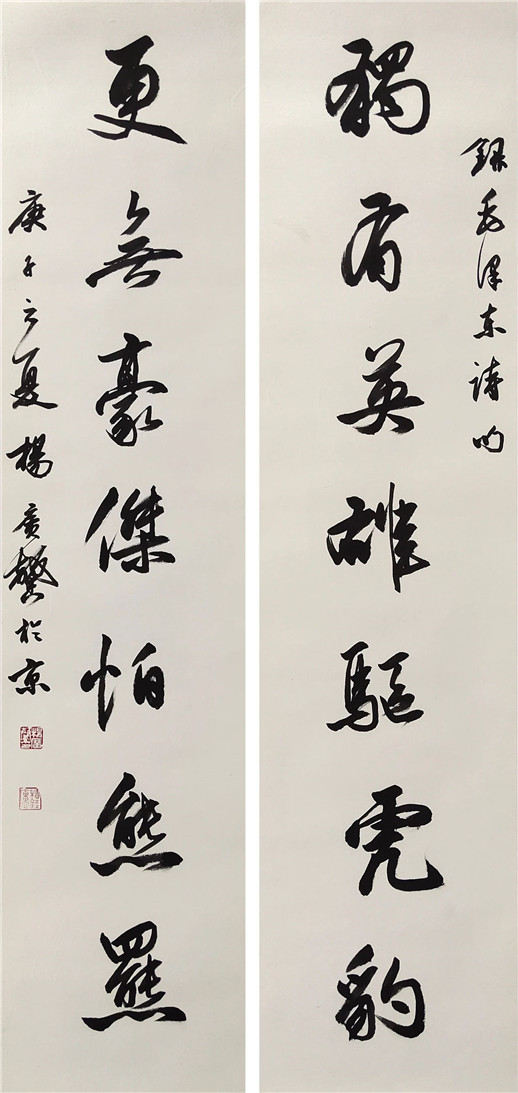 録毛澤東詩句
獨有英雄驅虎豹
更無豪傑怕熊羆
庚子之夏楊廣馨於京